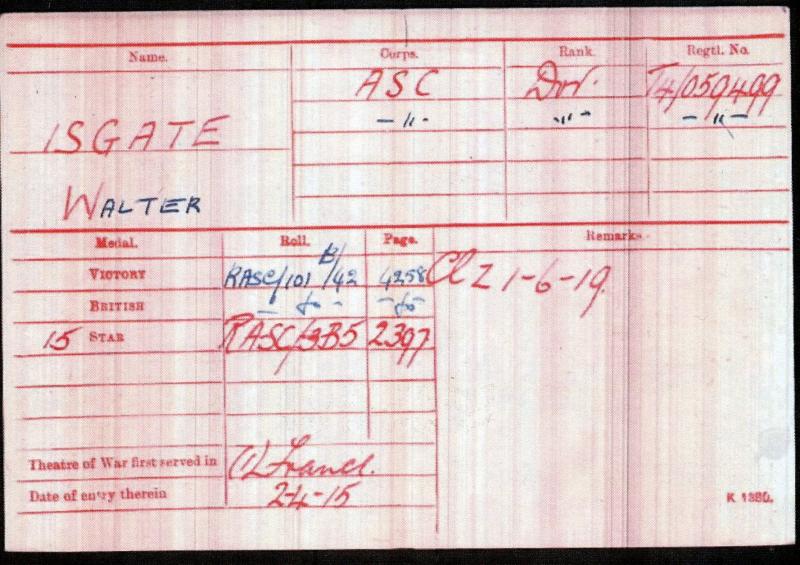 Name. Corps. Rank. Regtl. No.
ASC Dvr. T4/059499
ISGATE -"- -"- -"-
WALTER
Medal. Roll. Page. Remarks.
VICTORY RASC/101 B/42 4258 Cl Z 1-6-19.
BRITISH - do - - do -
15 STAR RASC/3B5 2397
Theatre of War first served in (1) France.
Date of entry therein 2-4-15
K 1380.